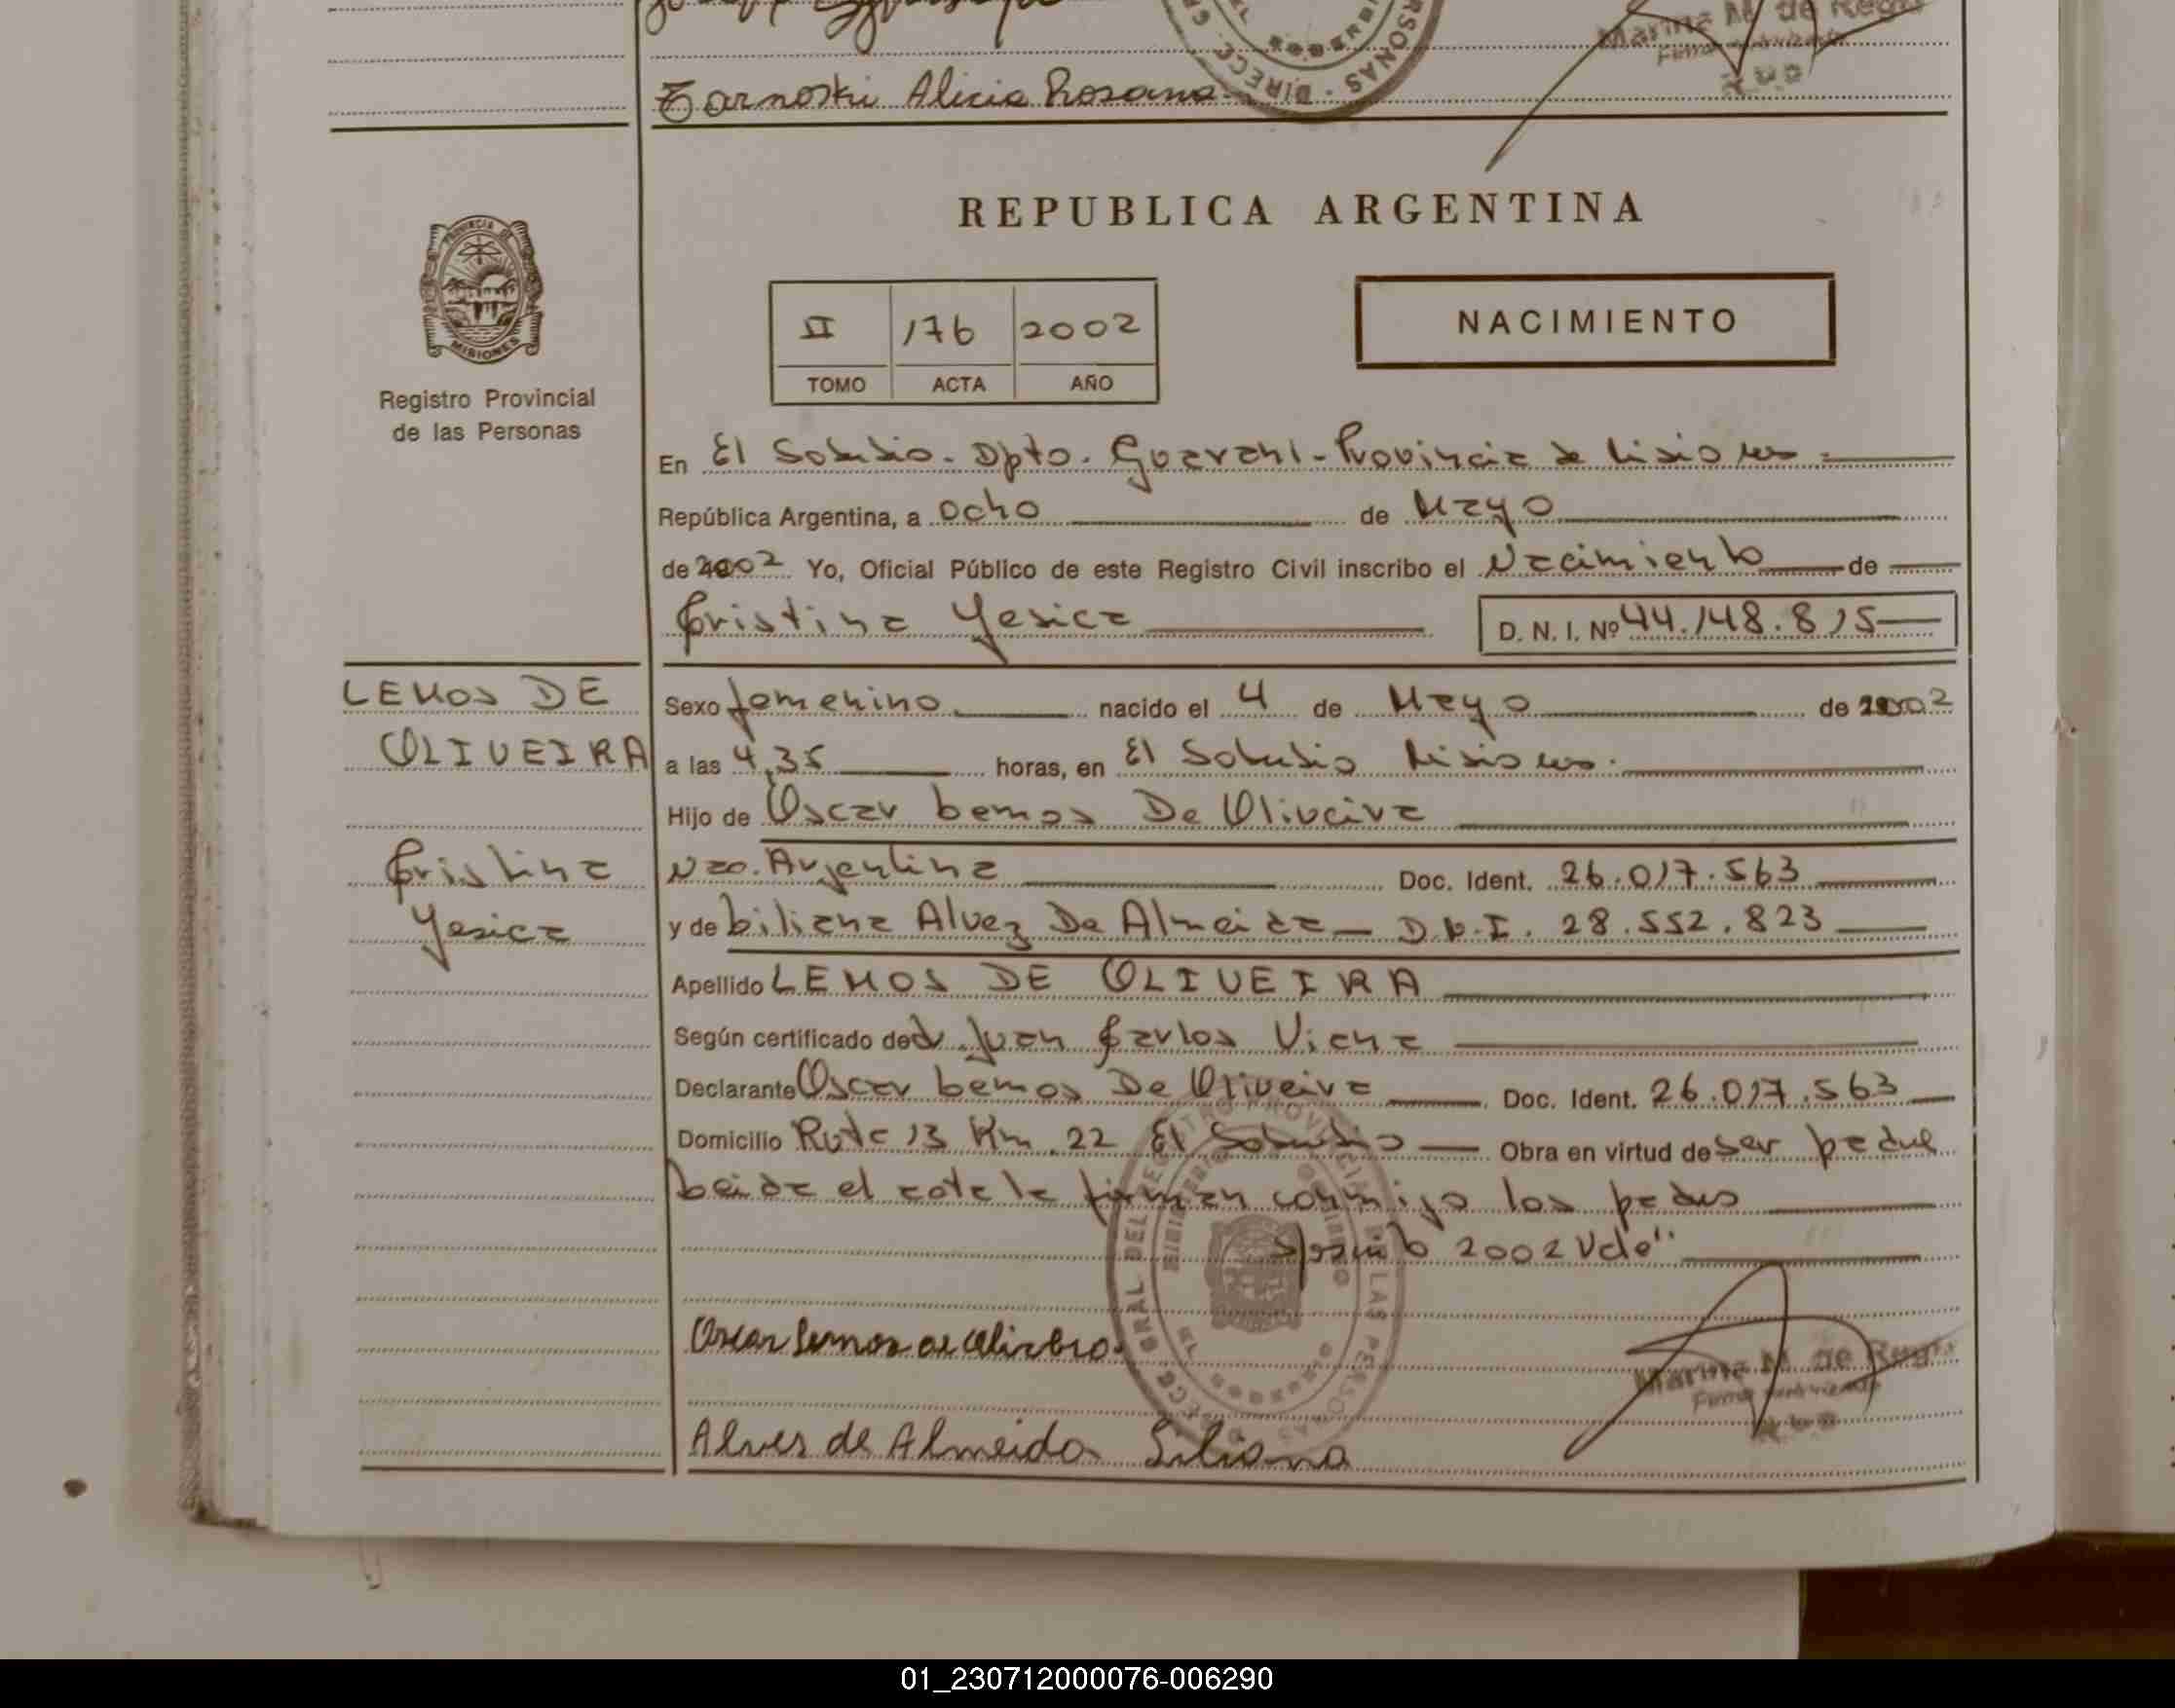 Zarnoski Alicia Rosana
Marina M. de Regis
Firma autorizada
R.P.P.
REPUBLICA ARGENTINA
PROVINCIA DE
MISIONES
II 176 2002
TOMO ACTA AÑO
NACIMIENTO
Registro Provincial
de las Personas
En El Soberbio - Dpto. Guarani - Provincia de Misiones
República Argentina, a Ocho de Mayo
de 2002 Yo, Oficial Público de este Registro Civil inscribo el Nacimiento de
Cristina Yesica D. N. I. Nº 44.148.815
LEMOS DE
OLIVEIRA
Cristina
Yesica
Sexo femenino nacido el 4 de Mayo de 2002
a las 4,35 horas, en El Soberbio Misiones.
Hijo de Oscar Lemos De Oliveira
Nac. Argentina Doc. Ident. 26.017.563
y de Liliana Alvez De Almeida - D.N.I. 28.552.823
Apellido LEMOS DE OLIVEIRA
Según certificado de dr Juan Carlos Viana
Declarante Oscar Lemos De Oliveira Doc. Ident. 26.017.563
Domicilio Ruta 13 Km. 22 El Soberbio Obra en virtud de ser padre
Leida el acta la firman conmigo los padres
2002 Vale"
Oscar Lemos de
Alves de Almeida Liliana
Marina M. de Regis
Firma autorizada
01_230712000076-006290